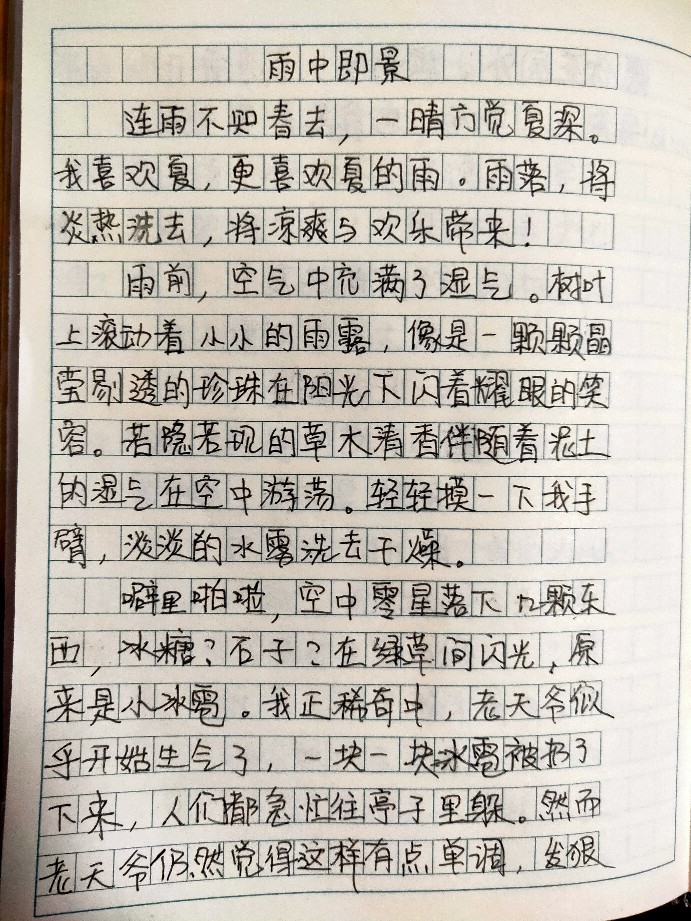 雨中即景
连雨不知春去，一晴方觉夏深。
我喜欢夏，更喜欢夏的雨。雨落，将
炎热洗去，将凉爽与欢乐带来！
雨前，空气中充满了湿气。树叶
上滚动着小小的雨露，像是一颗颗晶
莹剔透的珍珠在阳光下闪着耀眼的笑
容。若隐若现的草木清香伴随着泥土
的湿气在空中游荡。轻轻摸一下我手
臂，淡淡的水露洗去干燥。
噼里啪啦，空中零星落下几颗东
西，冰糖？石子？在绿草间闪光，原
来是小冰雹。我正稀奇中，老天爷似
乎开始生气了，一块一块冰雹被扔了
下来，人们都急忙往亭子里躲。然而
老天爷仍然觉得这样有点单调，发狠